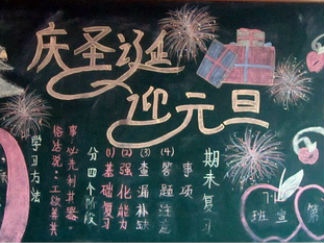 庆圣诞
迎元旦
学习方法
俗话说:工欲善其
事必先利其器
分四个阶段
(1)基础复习
(2)强化能力
(3)查漏补缺
(4)答题注意
事项
期末复习
班宣
第